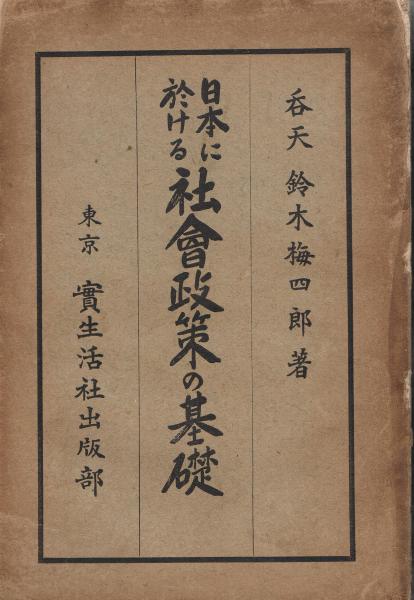 呑天 鈴木梅四郎 著
日本に
於ける
社會政策の基礎
東京 實生活社出版部